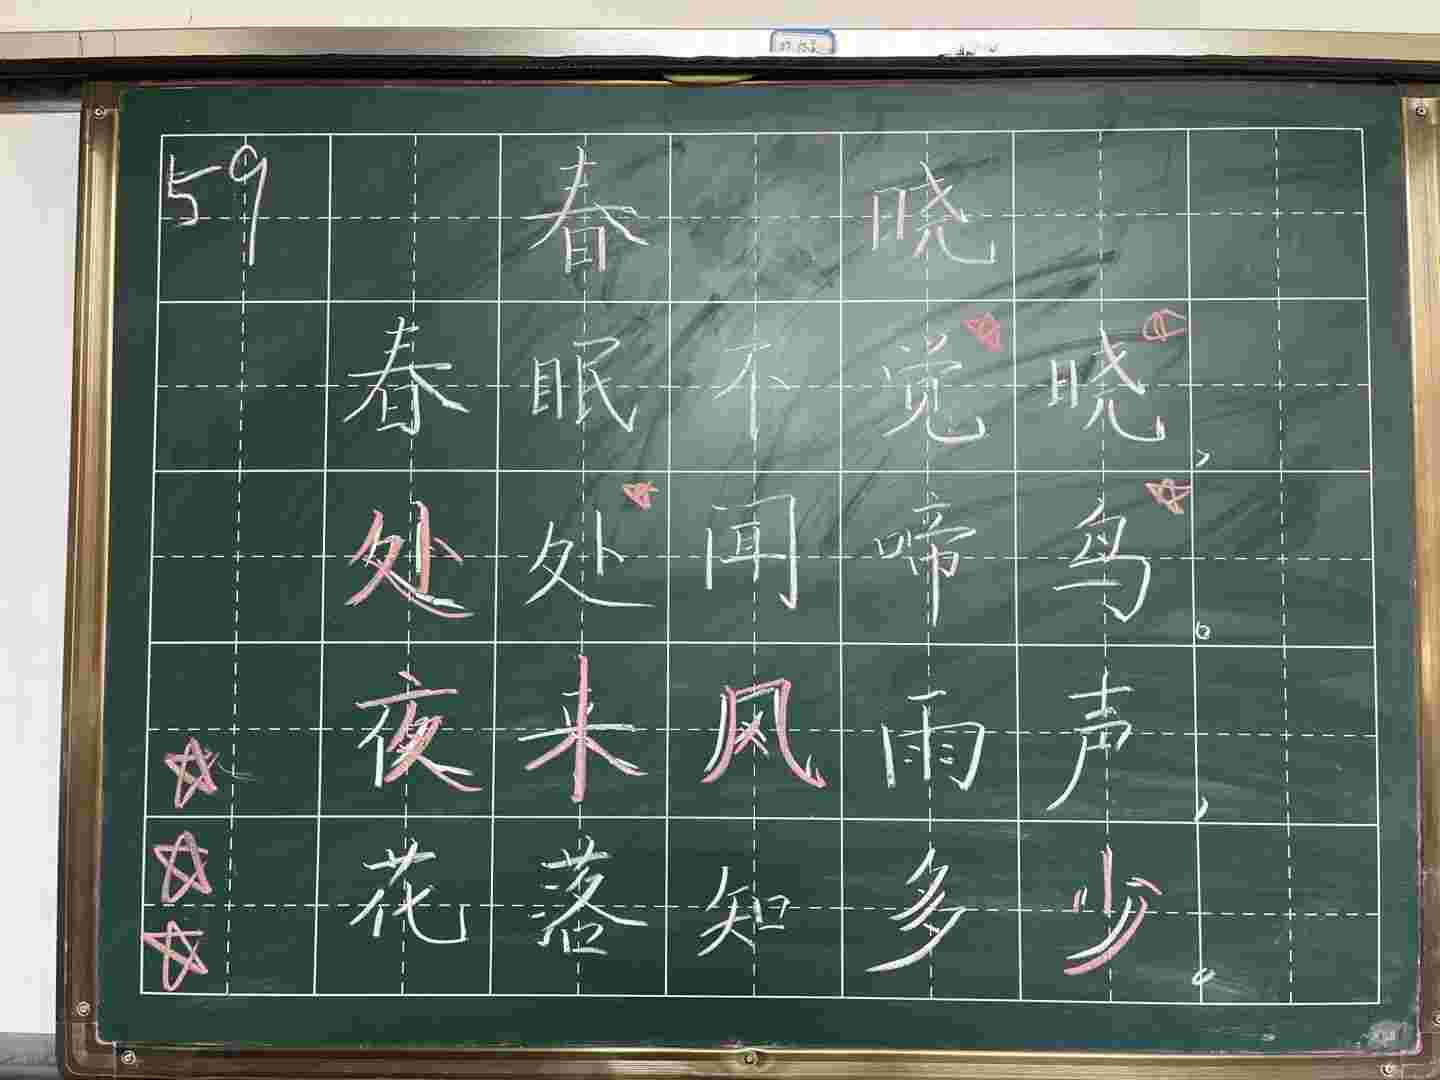 59 春晓
春眠不觉晓,
处处闻啼鸟。
夜来风雨声,
花落知多少。